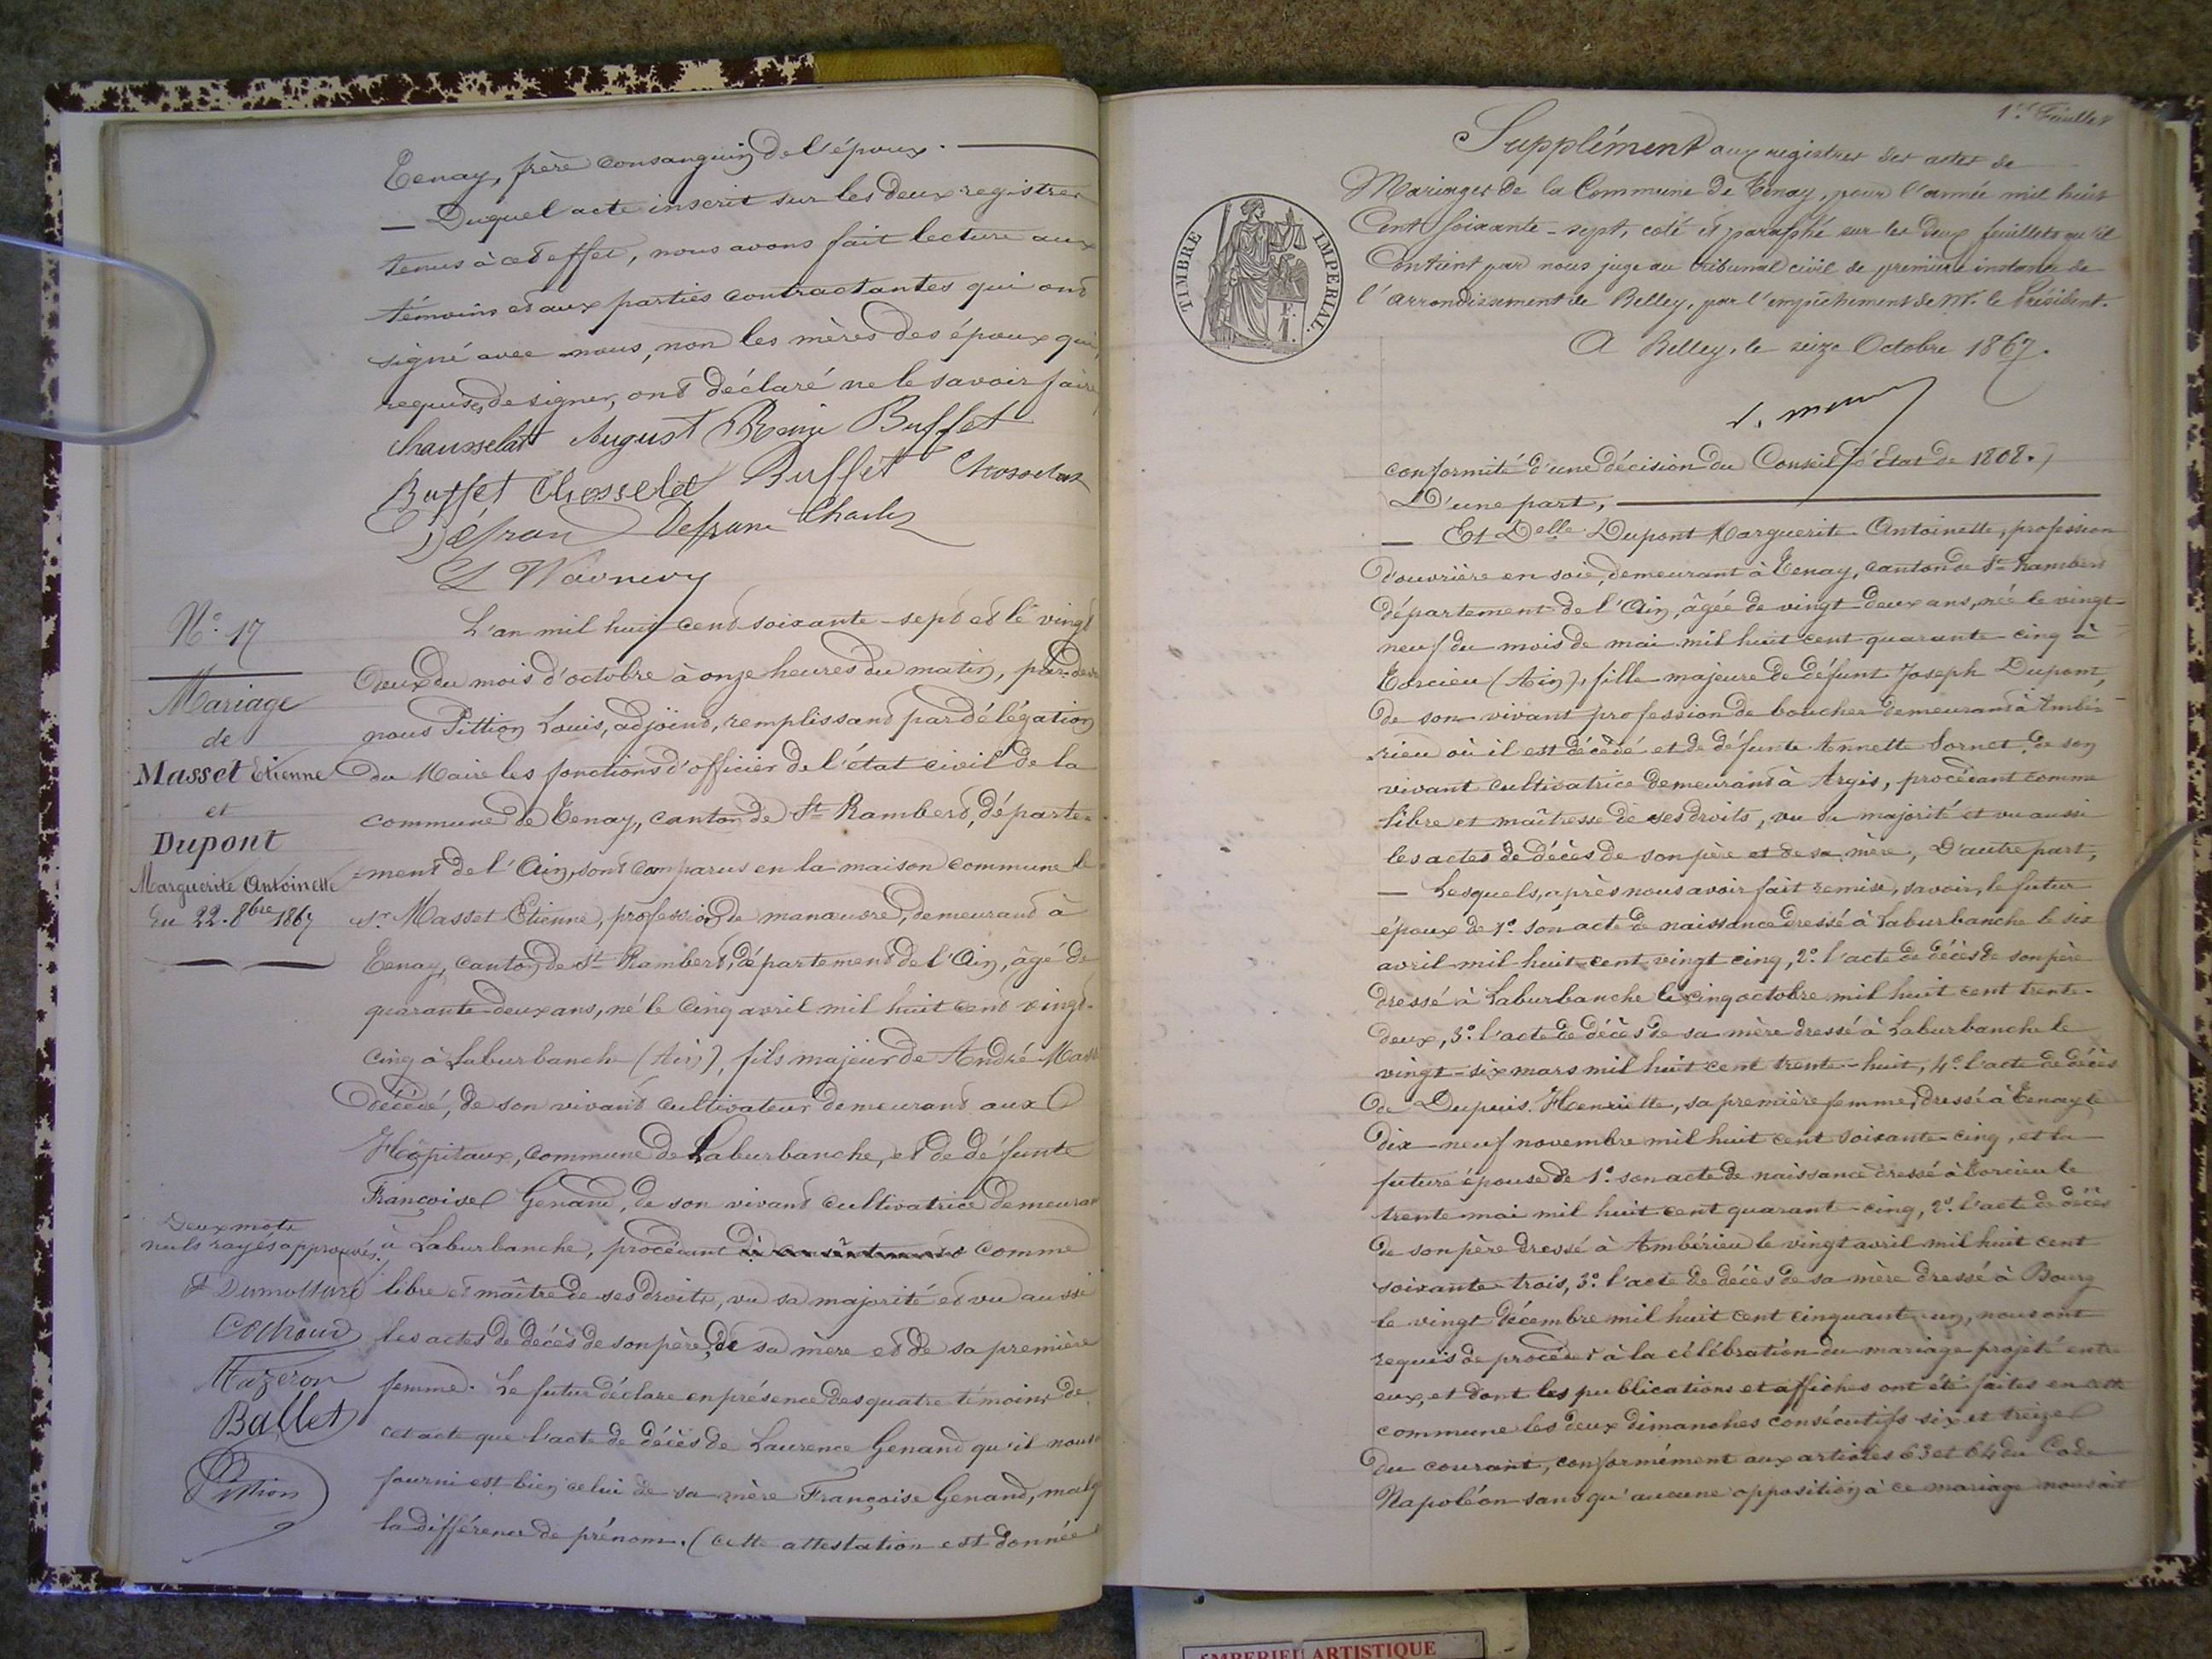 Tenay, frère consanguin de l'époux.
— Duquel acte inscrit sur les deux registres
tenus à cet effet, nous avons fait lecture aux
témoins et aux parties contractantes qui ont
signé avec nous, non les mères des époux qui,
requises de signer, ont déclaré ne le savoir faire
Chausselat August Buffet
Buffet Chosselat Buffet Chosselat
Defranc Charles
N.° 17
Mariage
de
Masset Etienne
et
Dupont
Marguerite Antoinette
Du 22. 8bre 1867
L'an mil huit cent soixante-sept et le vingt
deux du mois d'octobre à onze heures du matin, par devt
nous Pittion Louis, adjoint, remplissant par délégation
du Maire les fonctions d'officier de l'état civil de la
commune de Tenay, canton de St Rambert, départe-
=ment de l'Ain, sont comparus en la maison commune le
sr. Masset Etienne, profession de manœuvre, demeurant à
Tenay, canton de St Rambert, département de l'Ain, âgé de
quarante-deux ans, né le cinq avril mil huit cent vingt-
cinq à Laburbanche (Ain), fils majeur de André Mass
décédé, de son vivant cultivateur demeurant aux
Hôpitaux, commune de Laburbanche, et de défunte
Françoise Genand, de son vivant cultivatrice demeurant
à Laburbanche, procédant comme
libre et maître de ses droits, vu sa majorité et vu aussi
les actes de décès de son père, de sa mère et de sa première
femme. Le futur déclare en présence des quatre témoins de
cet acte que l'acte de décès de Laurence Genand qu'il nous
fourni est bien celui de sa mère Françoise Genand, malg
la différence de prénom. (cette attestation est donnée
Deux mots
nuls rayés approuvés.
Cochoud
Mazeron
Ballet
Pittion
1er Feuillet
Supplément aux registres des actes de
Mariages de la Commune de Tenay, pour l'année mil huit
Cent soixante-sept, coté et paraphé sur les deux feuillets qu'il
Contient par nous juge au tribunal civil de première instance de
l'arrondissement de Belley, par l'empêchement de Mr. le Président.
A Belley, le seize Octobre 1867.
TIMBRE IMPERIAL.
conformité d'une décision du Conseil d'Etat de 1808.)
D'une part,
— Et Delle Dupont Marguerite Antoinette, profession
d'ouvrière en soie, demeurant à Tenay, canton de St Rambert
département de l'Ain, âgée de vingt-deux ans, née le vingt-
neuf du mois de mai mil huit cent quarante-cinq à
Torcieu (Ain), fille majeure de défunt Joseph Dupont,
de son vivant profession de boucher demeurant à Ambé-
rieu où il est décédé et de défunte Annette Sornet, de son
vivant cultivatrice demeurant à Argis, procédant comme
libre et maîtresse de ses droits, vu sa majorité et vu aussi
les actes de décès de son père et de sa mère, D'autre part,
— Lesquels, après nous avoir fait remise, savoir, le futur
époux de 1.° son acte de naissance dressé à Laburbanche le six
avril mil huit cent vingt cinq, 2.° l'acte de décès de son père
dressé à Laburbanche le cinq octobre mil huit cent trente-
deux, 3.° l'acte de décès de sa mère dressé à Laburbanche le
vingt-six mars mil huit cent trente-huit, 4.° l'acte de décès
de Dupuis Henriette, sa première femme, dressé à Tenay le
dix-neuf novembre mil huit cent soixante-cinq, et la
future épouse de 1.° son acte de naissance dressé à Torcieu le
trente mai mil huit cent quarante-cinq, 2.° l'acte de décès
de son père dressé à Ambérieu le vingt avril mil huit cent
soixante-trois, 3.° l'acte de décès de sa mère dressé à Bourg
le vingt décembre mil huit cent cinquante-un, nous ont
requis de procéder à la célébration du mariage projeté entre
eux, et dont les publications et affiches ont été faites en cette
commune les deux dimanches consécutifs six et treize
du courant, conformément aux articles 63 et 64 du Code
Napoléon sans qu'aucune opposition à ce mariage nous ait
AMBERIEU ARTISTIQUE